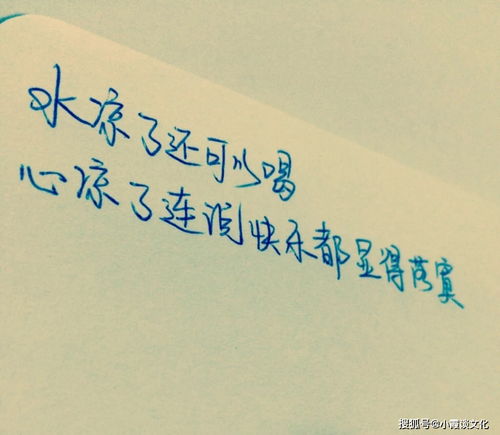 水凉了还可以喝
心凉了连说快乐都显得落寞
搜狐号@小霞谈文化